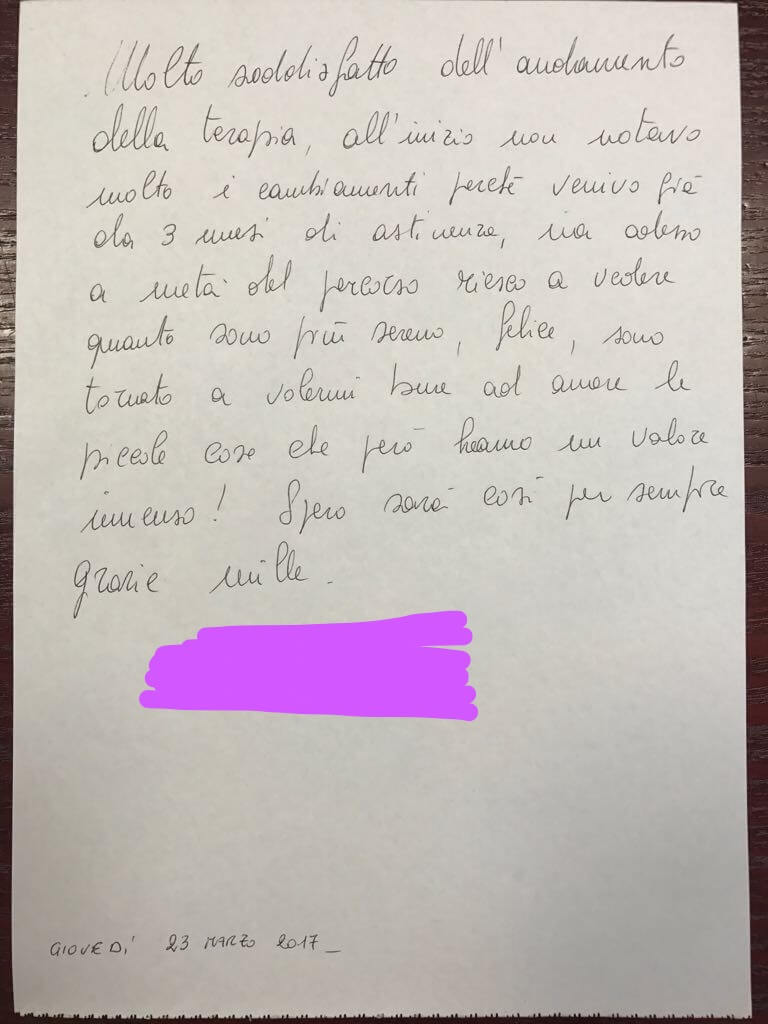 Molto soddisfatto dell'andamento
della terapia, all'inizio non notavo
molto i cambiamenti perché venivo già
da 3 mesi di astinenza, ma adesso
a metà del percorso riesco a vedere
quanto sono più sereno, felice, sono
tornato a volermi bene ad amare le
piccole cose che però hanno un valore
immenso! Spero sarà così per sempre
grazie mille.
GIOVEDÌ 23 MARZO 2017_